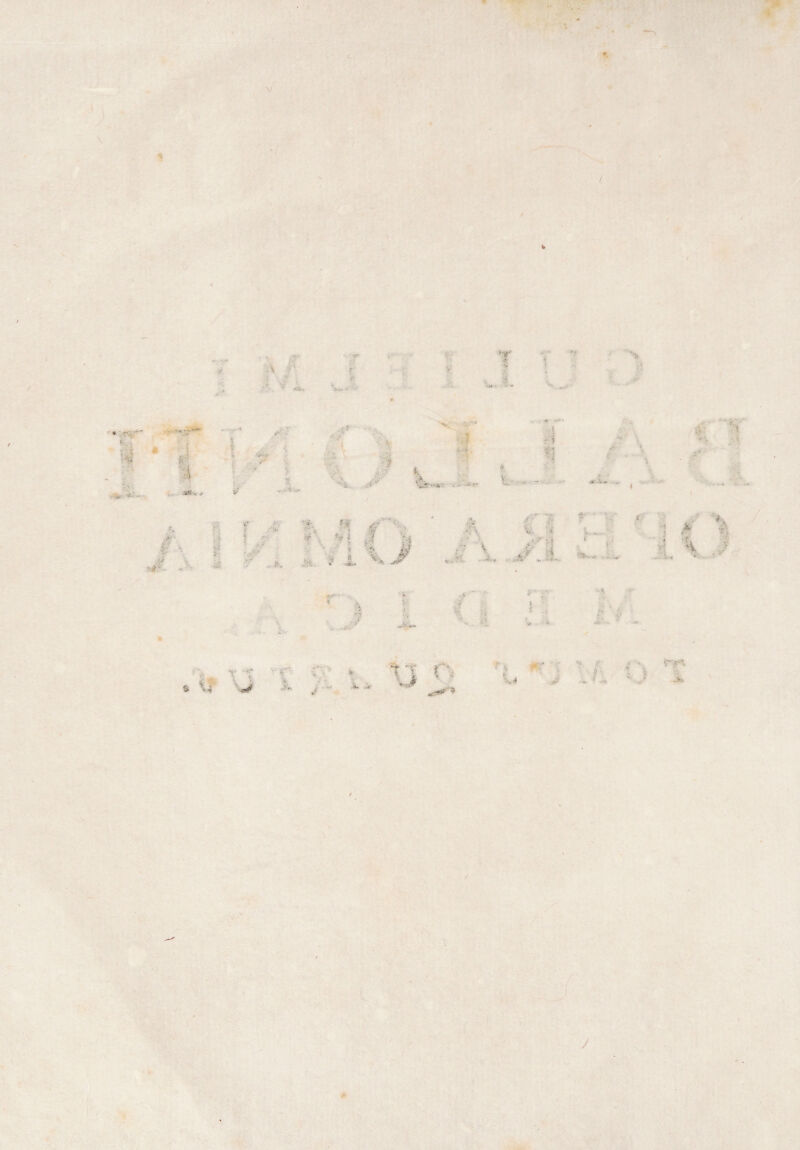 GULIELMI
BALLONII
OPERA OMNIA
MEDICA.
TOMUS QUARTUS.